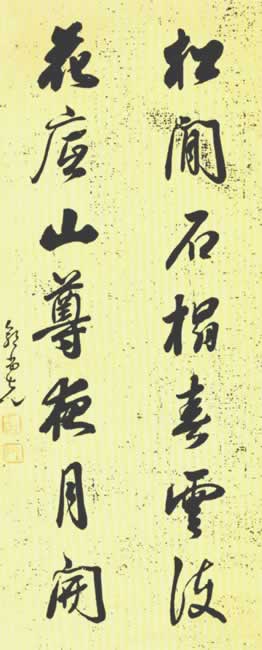 松間石榻春雲波
花底山尊夜月開
郭尚先